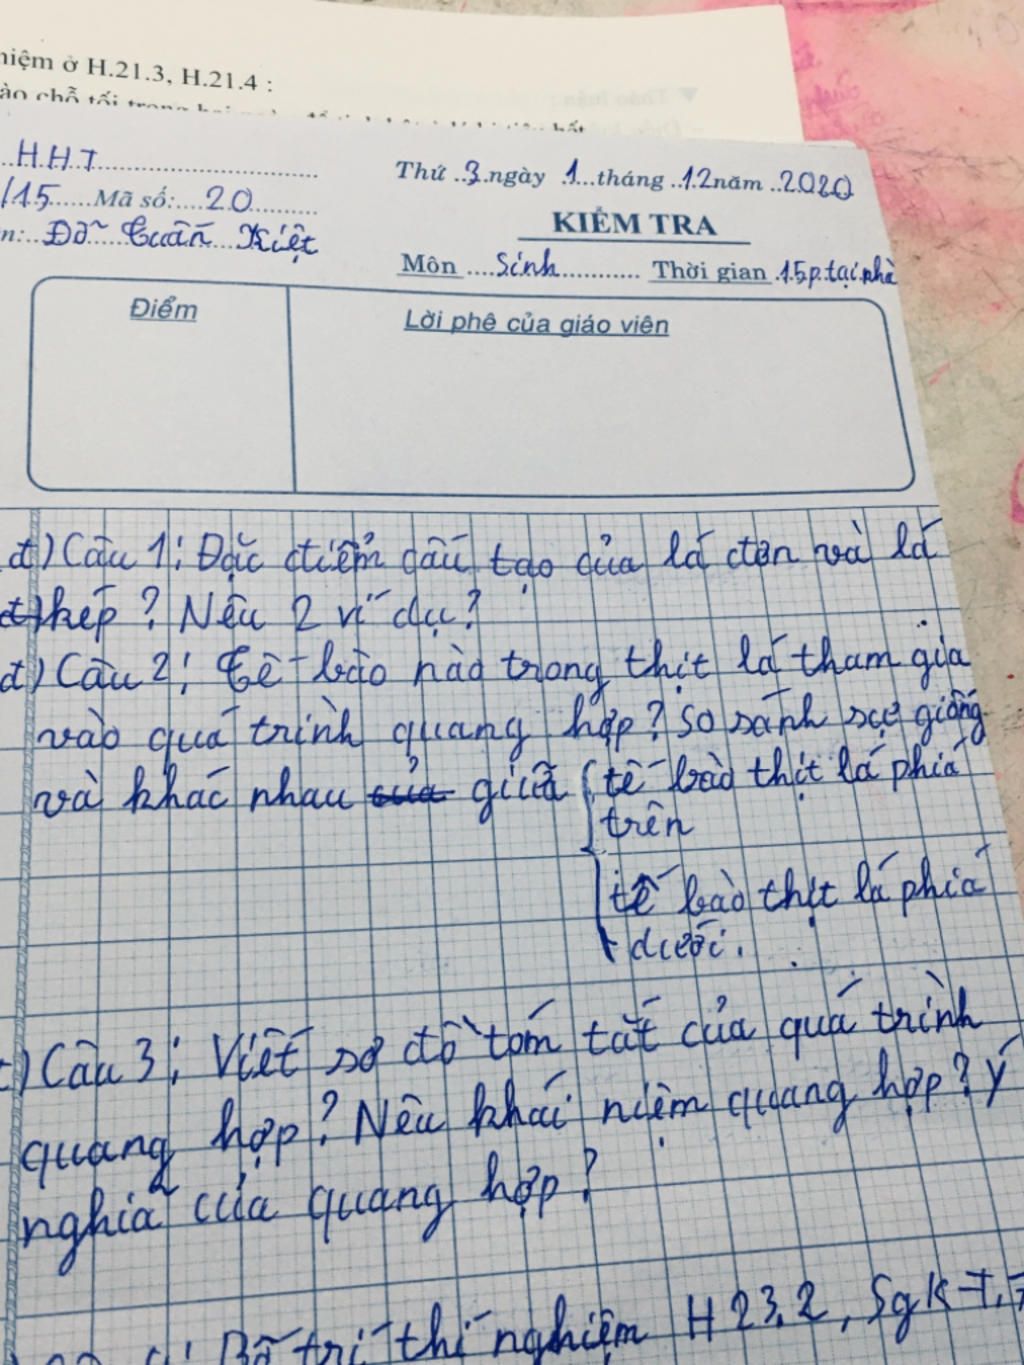 hiệm ở H.21.3, H.21.4 :
ào chỗ tối trong
H.H.T
/15 Mã số: 20
n: Đỗ Tuấn Kiệt
Thứ 3 ngày 1 tháng 12 năm 2020
KIỂM TRA
Môn Sinh Thời gian 15p tại nhà
Điểm
Lời phê của giáo viên
đ) Câu 1: Đặc điểm cấu tạo của lá đơn và lá
kép? Nêu 2 ví dụ?
đ) Câu 2: Tế bào nào trong thịt lá tham gia
vào quá trình quang hợp? So sánh sự giống
và khác nhau của giữa tế bào thịt lá phía
trên
tế bào thịt lá phía
dưới.
Câu 3: Viết sơ đồ tóm tắt của quá trình
quang hợp? Nêu khái niệm quang hợp? Ý
nghĩa của quang hợp?
Bố trí thí nghiệm H 23.2, Sgk